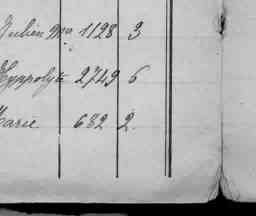 Aubin Mᵉˡ 1128 3
Hyppolyte 2749 6
Marie 682 2